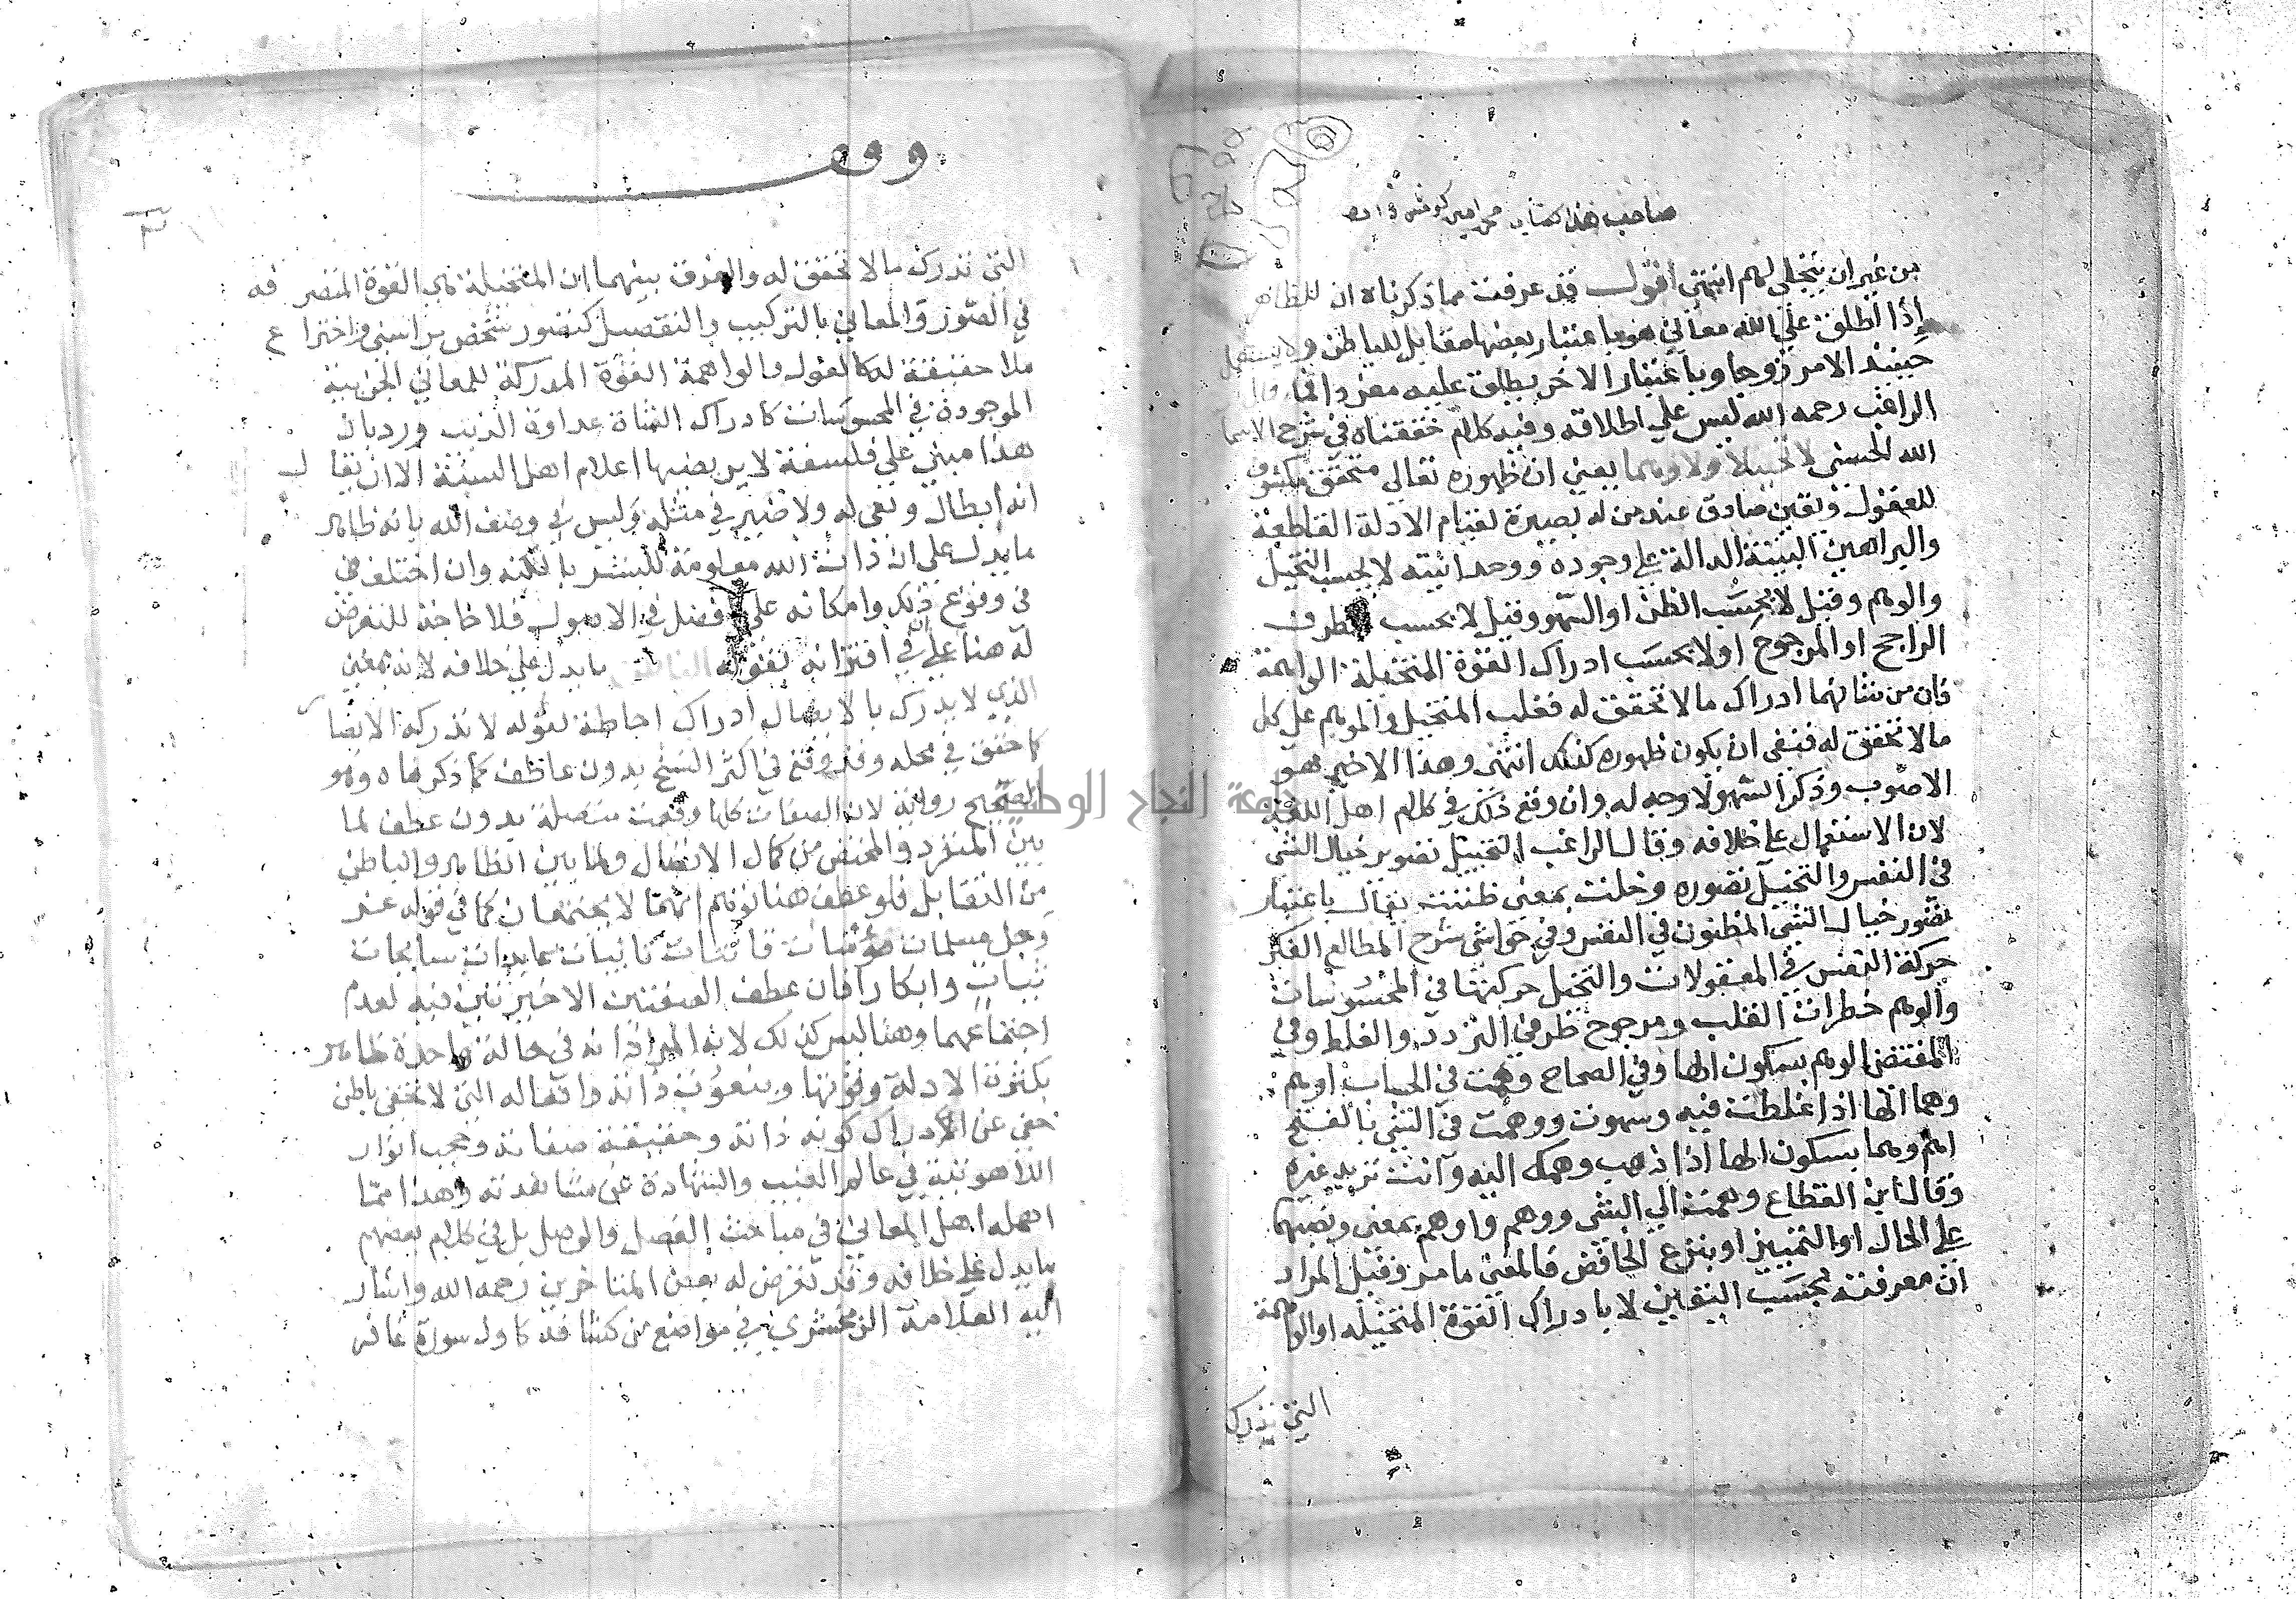 صاحب هذا الكتاب محمد امين
من غير ان يتجلى لهم انتهى اقول قد عرفت مما ذكرناه ان للظاهر
اذا اطلق على الله معاني هو باعتبار بعضها مقابل للباطن ولا يستعمل
حينئذ الا مزدوجا وباعتبار الاخر يطلق عليه مفردا فما قال
الراغب رحمه الله ليس على اطلاقه وفيه كلام حققناه في شرح الاسما
الله الحسنى لا تخيلا ولا وهما يعني ان ظهوره تعالى متحقق مكشوف
للعقول ويقين صادق عند من له بصيرة لقيام الادلة القاطعة
والبراهين البينة الدالة على وجوده ووحدانيته لا بحسب التخيل
والوهم وقيل لا بحسب الظن او السهو وقيل لا بحسب الطرف
الراجح او المرجوح اولا بحسب ادراك القوة المتخيلة الواهمة
فان من شانهما ادراك ما لا تحقق له فغلب المتخيل والموهم على كل
ما لا تحقق له فنفى ان يكون ظهوره كذلك انتهى وهذا الاخير هو
الاصوب وذكر السهو لا وجه له وان وقع ذلك في كلام اهل اللغة
لان الاستعمال على خلافه وقال الراغب التخييل تصوير خيال الشي
في النفس والتخيل تصوره وخلت بمعنى ظننت يقال باعتبار
تصور خيال الشي المظنون في النفس وفي حواشي شرح المطالع الفكر
حركة النفس في المعقولات والتخيل حركتها في المحسوسات
والوهم خطرات القلب ومرجوح طرفي التردد والغلط وفي
المقتضى الوهم بسكون الها وفي الصحاح وهمت في الحساب اوهم
وهما الها اذا غلطت فيه وسهوت ووهمت في الشي بالفتح
اهم وهما بسكون الها اذا ذهب وهمك اليه وانت تريد غيره
وقال ابن القطاع وهمت الى الشي ووهم واوهم بمعنى ونصبهما
على الحال او التمييز او بنزع الخافض فالمعنى ما مر وقيل المراد
ان معرفته بحسب اليقين لا بادراك القوة المتخيله او الواهمة
التي تدرك
وقف
٣
التي تدرك ما لا تحقق له والفرق بينهما ان المتخيلة هي القوة المتصرفه
في الصور والمعاني بالتركيب والتفصيل كتصور شخص براسين واختراع
ملا حقيقة له كالغول والواهمة القوة المدركة للمعاني الجزيية
الموجودة في المحسوسات كادراك الشاة عداوة الذيب ورد بان
هذا مبني على فلسفة لا يرتضيها اعلام اهل السنة الا ان يقال
انه ابطال ونفى له ولا ضير في مثله وليس في وصف الله بانه ظاهر
ما يدل على ان ذات الله معلومة للبشر بالكنه وان اختلف في
في وقوع ذلك وامكانه على فصل في الاصول فلا حاجة للتعرض
له هنا على في اقترانه بقوله ما يدل على خلافه لانه بمعنى
الذي لا يدرك بالابصار ادراك احاطة لقوله لا تدركه الابصار
كما حقق في محله وقد وقع في اكثر النسخ بدون عاطف كما ذكرناه وهو
الصحيح رواية لان الصفات كلها وقعت متصلة بدون عطف لما
بين المتفرد والمختص من كمال الاتصال ولما بين الظاهر والباطن
من التقابل فلو عطف هنا توهم انهما لا يجتمعان كما في قوله عز
وجل مسلمات مؤمنات قانتات تايبات عابدات سايحات
ثيبات وابكارا فان عطف الصفتين الاخيرتين فيه لعدم
اجتماعهما وهنا ليس كذلك لان المراد انه في حالة واحدة ظاهر
بكثرة الادلة وقوتها وبنعوت ذاته وافعاله التي لا تخفى باطن
خفي عن الادراك كونه ذاته وحقيقة صفاته وحجب انوار
اللاهوتية في عالم الغيب والشهادة عن مشاهدته وهذا مما
اهمله اهل المعاني في مباحث الفصل والوصل بل في كلام بعضهم
ما يدل على خلافه وقد تعرض له بعض المتاخرين رحمه الله واشار
اليه العلامة الزمخشري في مواضع من كشافه كاول سورة غافر
جامعة النجاح الوطنية